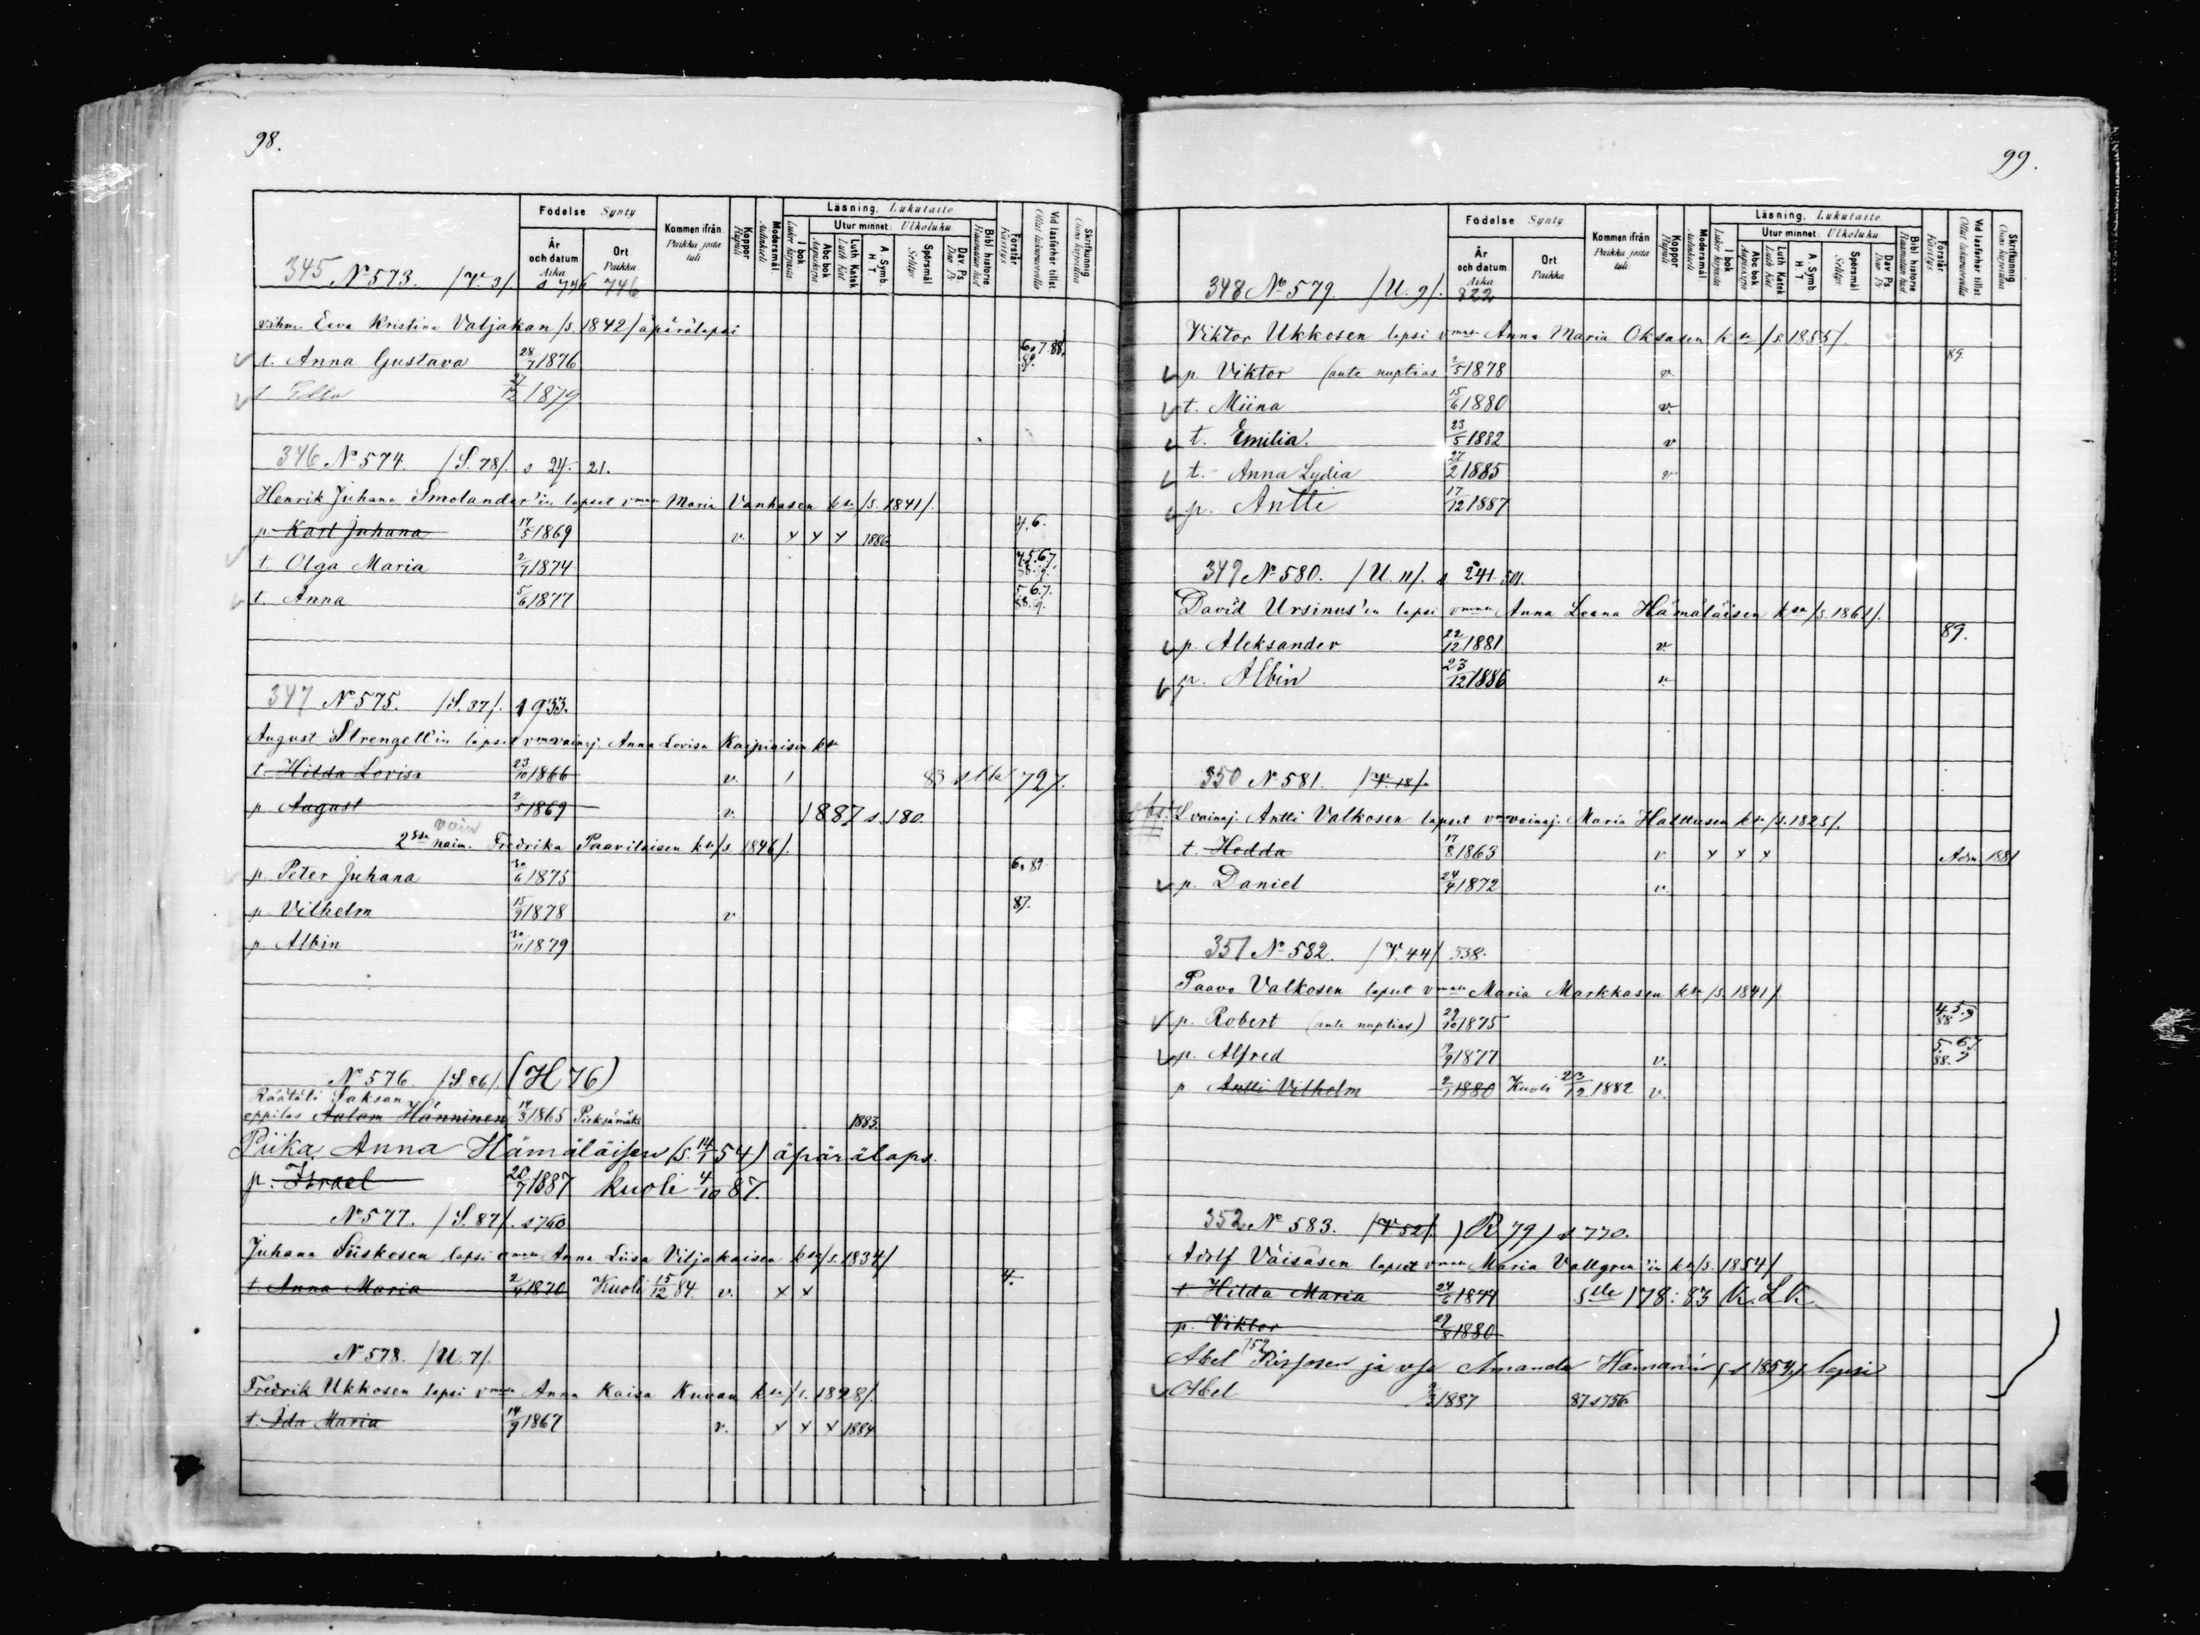 98.
Födelse Synty
År och datum Aika
Ort Paikka
Kommen ifrån Paikka josta tuli
Koppor Rupuli
Modersmål. Äidinkieli
Läsning. Lukutaito
I bok Luku kirjasta
Utur minnet: Ulkoluku
Abc bok Aapiskirja
Luth Katek Luth Kat
A. Symb. H. T.
Spörsmål Selitys
Dav. Ps. Dav Ps
Bibl historie Raamatun hist
Förstår Käsitys
Vid läsförhör tillst Ollut lukuvuorolla
Skriftkunnig Osaa kirjoittaa
345 No 573. /V. 3/. s 746 746
Eeva Kristina Valjakan /s. 1842/ äpärälapsi
t. Anna Gustava 28/7 1876 6.7.88. 89.
t 27/12 1879
346 No 574. /S. 78/. s 24. 21.
Henrik Juhana Smolander'in lapset vmon Maria Vanhasen kssa /s. 1841/.
p. Karl Juhana 17/5 1869 v. x x x 1886 4.6.
t. Olga Maria 2/7 1874 4.5.6.7. 88.9.
t. Anna 5/6 1877 5.6.7. 88.9.
347 No 575. /S. 37/. s 933.
August Strengell'in lapset Anna Lovisa Kaipiaisen kssa
t. Hilda Lovisa 23/10 1866 v. / 83 slle 797.
p August 2/5 1869 v. 1887 s. 180.
vain
2ssa naim. Fredrika Paavilaisen kssa /s. 1846/.
p. Peter Juhana 30/6 1875 6.89.
p Vilhelm 15/9 1878 v. 87.
p. Albin 30/11 1879
No 576. /S. 86/. (H 76)
Räätäli Saksan
oppilas Aatam Hänninen 14/3 1865 Pieksämäki 1883.
Piika Anna Hämäläisen (s. 14/1 54) äpärälaps.
p. Israel 20/7 1887 kuoli 4/10 87.
No 577. /S. 87/. s 760
Juhana Siiskosen lapsi vmon Anna Liisa Viljakaisen kssa /s. 1834/
t Anna Maria 2/4 1870 Kuoli 15/12 84. v. x x 4.
No 578. /U. 7/.
Fredrik Ukkosen lapsi vmon Anna Kaisa Kuvan kssa /s. 1828/.
t. Ida Maria 14/9 1867 v. x x x 1884
99.
Födelse Synty
År och datum Aika
Ort Paikka
Kommen ifrån Paikka josta tuli
Koppor Rupuli
Modersmål. Äidinkieli
Läsning. Lukutaito
I bok Luku kirjasta
Utur minnet: Ulkoluku
Abc bok Aapiskirja
Luth Katek Luth Kat
A. Symb H T
Spörsmål Selitys
Dav. Ps Dav Ps
Bibl historie Raamatun hist
Förstår Käsitys
Vid läsförhör tillst Ollut lukuvuorolla
Skriftkunnig Osaa kirjoittaa
348 No 579. /U. 9/. 822
Viktor Ukkosen lapsi vmon Anna Maria Oksasen kssa /s. 1855/.
p. Viktor (ante nuptias 2/5 1878 v. 89.
t. Miina 15/6 1880 v.
t. Emilia. 23/5 1882 v
t. Anna Lydia 27/2 1885 v
p. Antti 17/12 1887
349 No 580. /U. 11/. s 241. 501.
David Ursinus'en lapsi vmon Anna Leena Hämäläisen kssa /s. 1861/.
p. Aleksander 22/12 1881 v. 89.
p. Albin 23/12 1886 v.
350 No 581. /V. 18/.
L. vainaj. Antti Valkosen lapset vmon vainaj. Maria Hattusen kssa /s. 1825/.
t. Hedda 17/8 1863 v x x x Adm 1881
p. Daniel 24/4 1872 v.
351 No 582. /V. 44/ 538.
Paavo Valkosen lapset vmon Maria Markkasen kssa /s. 1841/.
p. Robert (ante nuptias) 29/10 1875 4.5.9 88
p. Alfred 7/9 1877 v. 5.6.7 88.9
p Antti Vilhelm 2/1 1880 Kuoli 23/12 1882 v.
352 No 583. /V 52/. (R. 79) s 770.
Adolf Väisäsen lapset vmon Maria Vallgren'in kssa /s. 1854/
t Hilda Maria 24/6 1877 slle 178: 83 K. L K.
p. Viktor 29/8 1880
Abel ja vso Amanda (s 1854) lapsi
Abel 1887 87 s 756